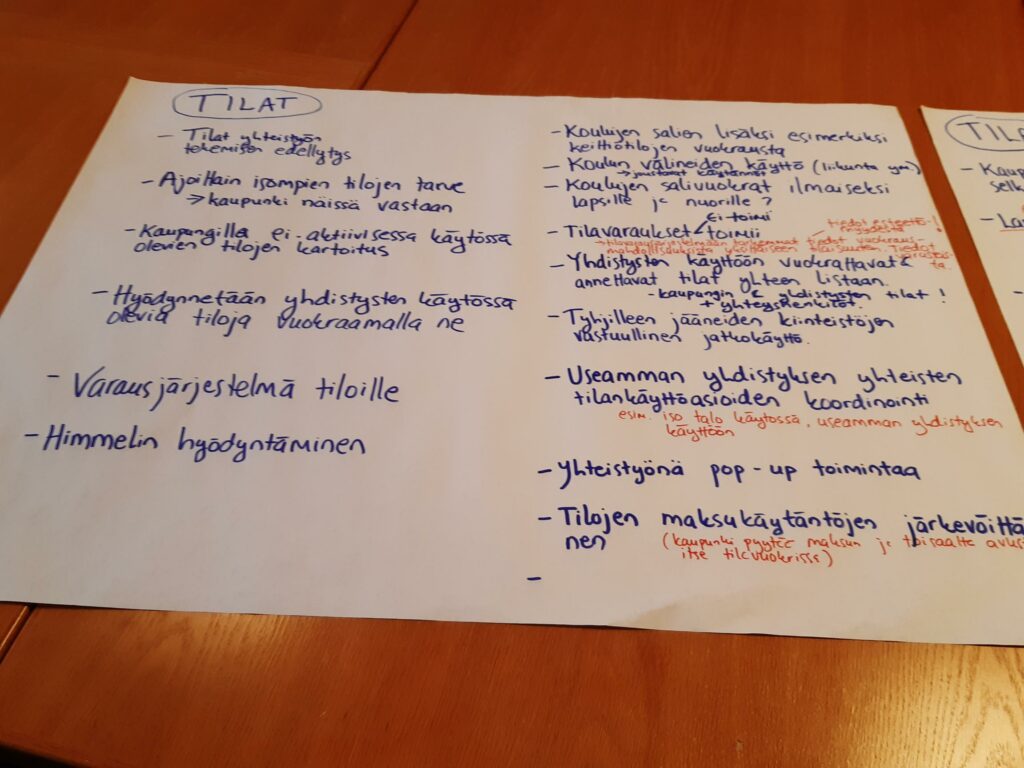 TILAT
- Tilat yhteistyön
tekemisen edellytys
- Ajoittain isompien tilojen tarve
→ kaupunki näissä vastaan
- Kaupungilla ei-aktiivisessa käytössä
olevien tilojen kartoitus
- Hyödynnetään yhdistysten käytössä
olevia tiloja vuokraamalla ne
- Varausjärjestelmä tiloille
- Himmelin hyödyntäminen
- Koulujen salien lisäksi esimerkiksi
keittiötilojen vuokrausta
- Koulun välineiden käyttö (liikunta ym.)
→ joustavat käytännöt
- Koulujen salivuokrat ilmaiseksi
lapsille ja nuorille?
ei toimi
- Tilavaraukset toimii
tiedot esteettö-!
myydestä
→ tilavarausjärjestelmään tarkemmat tiedot vuokraus-
mahdollisuuksista yksittäiseen tilaisuuteen, tiedot
varusteis-
ta.
- Yhdistysten käyttöön vuokrattavat &
annettavat tilat yhteen listaan.
- kaupungin & yhdistysten tilat!
+ yhteyshenkilöt
- Tyhjilleen jääneiden kiinteistöjen
vastuullinen jatkokäyttö.
- Useamman yhdistyksen yhteisten
tilankäyttöasioiden koordinointi
esim. iso talo käytössä, useamman yhdistyksen
käyttöön
- Yhteistyönä pop-up toimintaa
- Tilojen maksukäytäntöjen järkevöittä
nen
(kaupunki pyytää maksun ja toisaalta avus
itse tilavuokrissa)
-
TILA
- Kaup
selk
- La